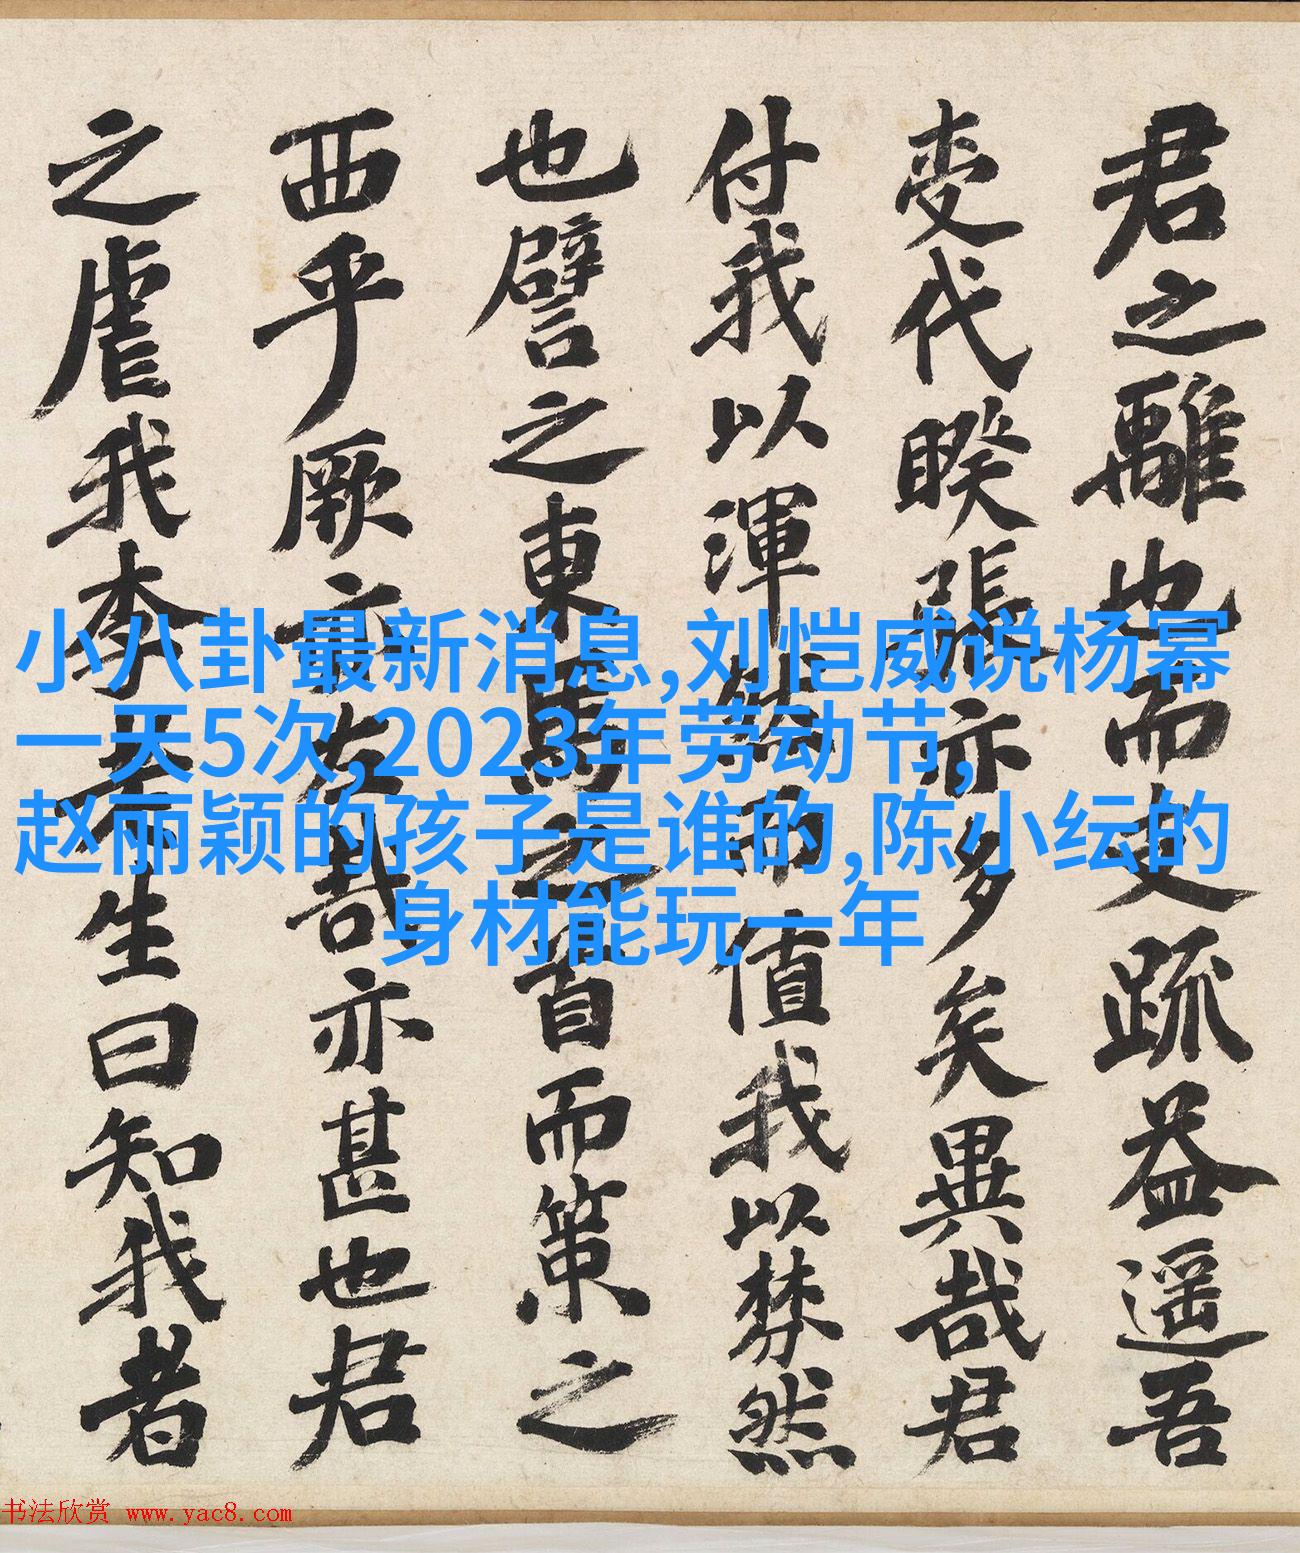 君之離也而史疏益遥吾
变代暌張亦多矣異哉君
付我以渾然而值我以棼然
也譬之東馬之首而策之
西乎厥亦左哉亦甚也君
之虐我李君生曰知我者
小八卦最新消息,刘恺威说杨幂
一天5次,2023年劳动节,
赵丽颖的孩子是谁的,陈小纭的
身材能玩一年
书法欣赏 www.yac8.com